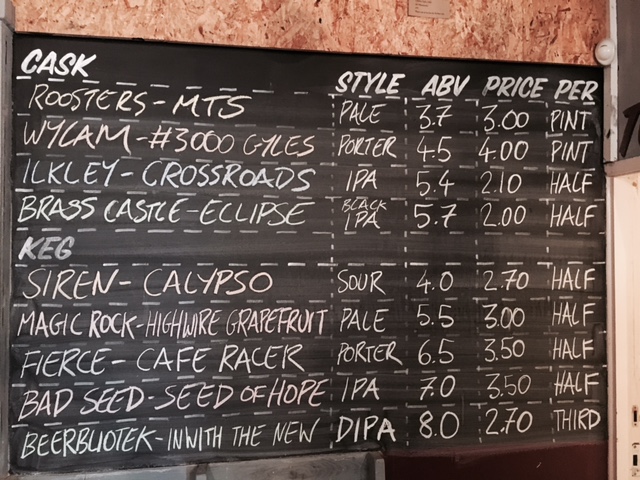 CASK STYLE ABV PRICE PER
ROOSTERS-MTS PALE 3.7 3.00 PINT
WYLAM-#3000 GYLES PORTER 4.5 4.00 PINT
ILKLEY-CROSSROADS IPA 5.4 2.10 HALF
BRASS CASTLE-ECLIPSE BLACK IPA 5.7 2.00 HALF
KEG
SIREN- CALYPSO SOUR 4.0 2.70 HALF
MAGIC ROCK-HIGHWIRE GRAPEFRUIT PALE 5.5 3.00 HALF
FIERCE- CAFE RACER PORTER 6.5 3.50 HALF
BAD SEED-SEED OF HOPE IPA 7.0 3.50 HALF
BEERBLIOTEK-IN WITH THE NEW DIPA 8.0 2.70 THIRD